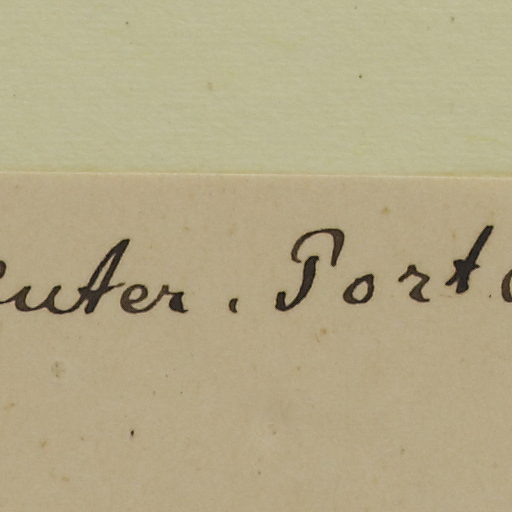 euter. Port